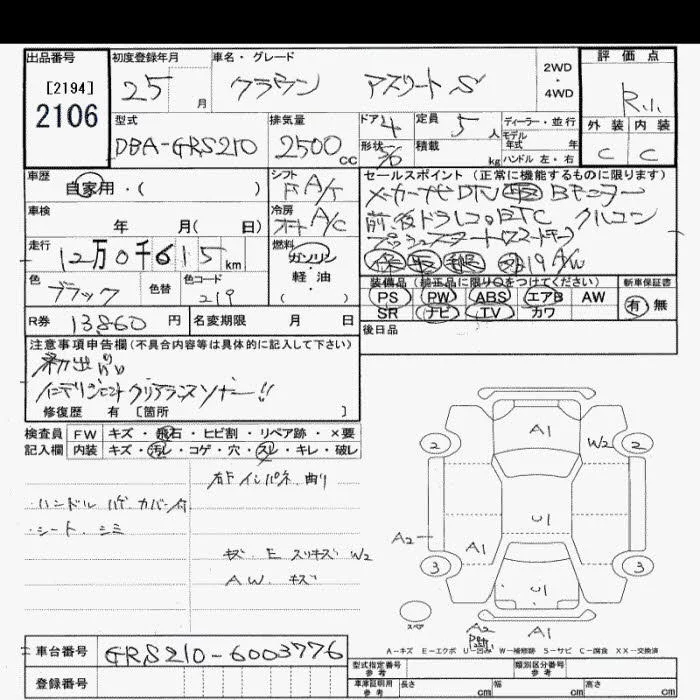 出品番号 初度登録年月 車名・グレード 2WD ・ 4WD 評価点
[2194] 2106 25 月 クラウン アスリート S R.1.
型式 排気量 ドア 4 定員 5 人 ディーラー・並行
DBA-GRS210 2500 cc 形状 積載 kg モデル年式 年 ハンドル 左・右 外装 内装
C C
車歴 自家用・( ) シフト F A/T セールスポイント(正常に機能するものに限ります)
メーカーナビ DTV Bモニター
車検 年 月( 日) 冷房 A/C 前、後ドラレコ。ETC クルコン
走行 12万0千615 km 燃料 ガソリン プッシュスタート(スマートキー)
軽・油 ( ) 19 A/W
色 ブラック 色替 色コード 219 装備品(純正品に限り○をつけてください) 新車保証書
PS PW ABS エアB AW 有 無
SR ナビ TV カワ
R券 13860 円 名変期限 月 日 後日品
注意事項申告欄(不具合内容等は具体的に記入して下さい)
初出品
インテリジェントクリアランスソナー!!
修復歴 有 [箇所 ]
検査員 FW キズ・飛石・ヒビ割・リペア跡・×要
記入欄 内装 キズ・汚レ・コゲ・穴・スレ・キレ・破レ
右F インパネ 曲り
・ハンドル ハゲ カバー付
・シート シミ
キズ E スリキズ W2
AW. キズ
A1 W2 2 2
U1
A2 A1 3 3
U1
スペア A2 A1
A-キズ E-エクボ U-凹み W-補修跡 S-サビ C-腐食 XX-交換済
車台番号 GRS210-6003776 型式指定番号 参考 類別区分番号 参考
登録番号 車庫証明用 参考 長さ cm 幅 cm 高さ cm